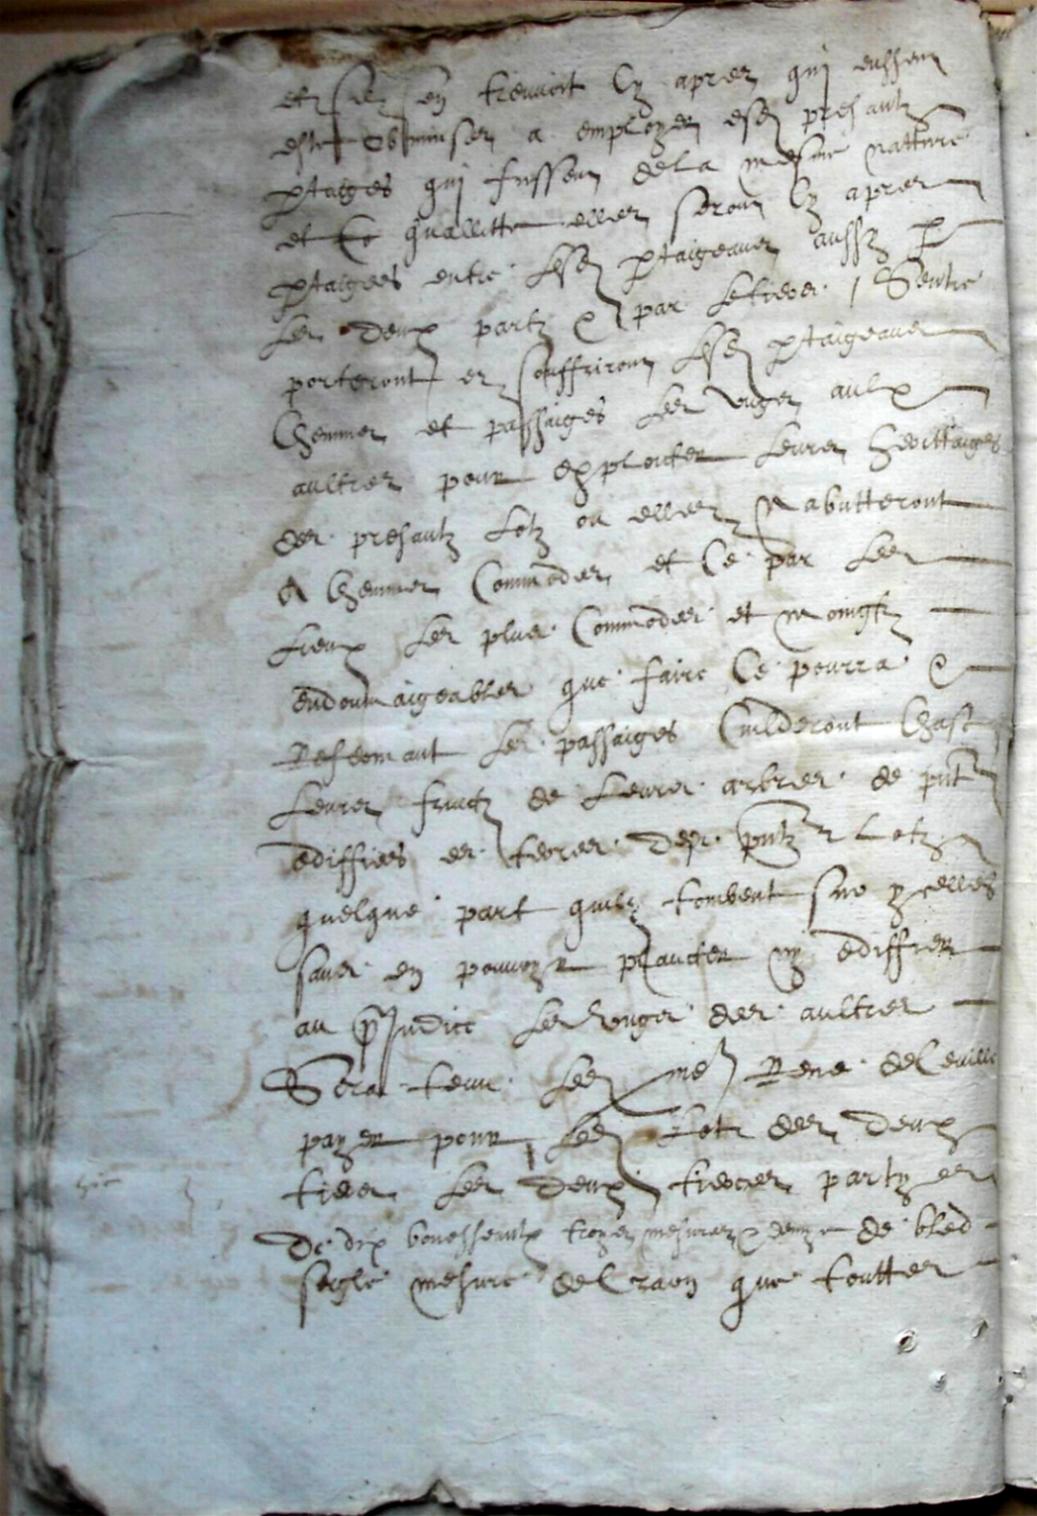 et sen trouvoit cy apres qui eussent
este obminses a employer es presantz
ptaiges qui fussent de la mesme natture
et quallitte elles seront cy apres
ptaigees entre lesd ptaigeans aussy p
les deux partz & par le tiers / Sentre
porteront et souffriront lesd ptaigeans
chemins et passaiges les ungs aulx
aultres pour exploicter leurs heritaiges
des presantz lotz ou elles nabutteront
a chemins commodes et ce par les
lieux les plus commodes et moingtz
endoumaigeables que faire ce pourra &
les passaiges Cuilderont chast
leurs fruictz de leurs arbres de pnt
ediffies es terres desd pntz lotz
quelque part quilz tombent sur ycelles
sans en pouvoyr planter ny ediffier
au prejudice les ungs des aultres
Sera tenu led Rene de Leville
payer pour lesd lotz des deux
tiers les deux tierces partz
De dix bouesseaulx troys mesures & demye de bled
seigle mesure de Craon que touttes